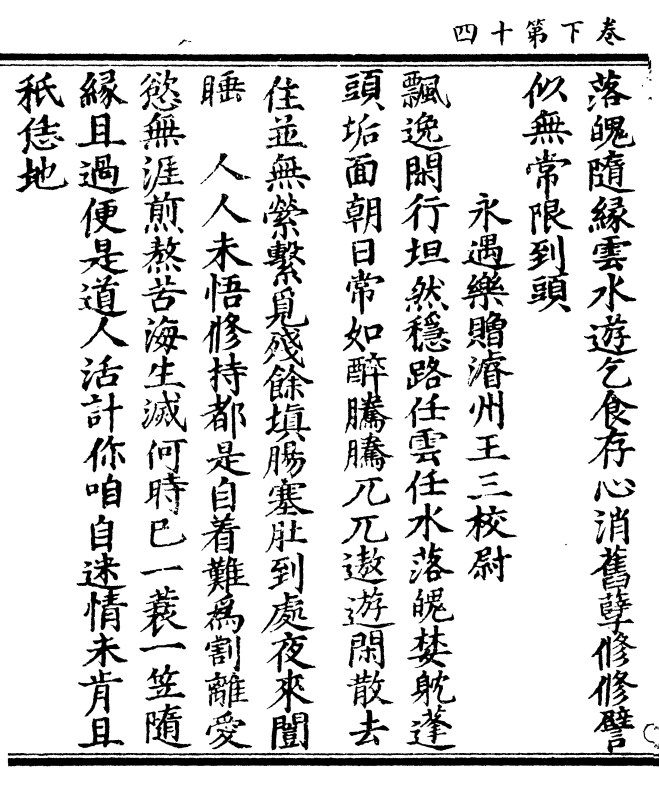 卷下第十四
落魄隨緣雲水遊乞食存心消舊孽修修譬
似無常限到頭
永遇樂贈濬州王三校尉
飄逸閑行坦然穩路任雲任水落魄婪躭蓬
頭垢面朝日常如醉騰騰兀兀遨遊閑散去
住並無縈繫覓殘餘填腸塞肚到處夜來閭
睡 人人未悟修持都是自着難為割離愛
慾無涯煎熬苦海生滅何時已一蓑一笠隨
緣且過便是道人活計你咱自迷情未肯且
秖恁地